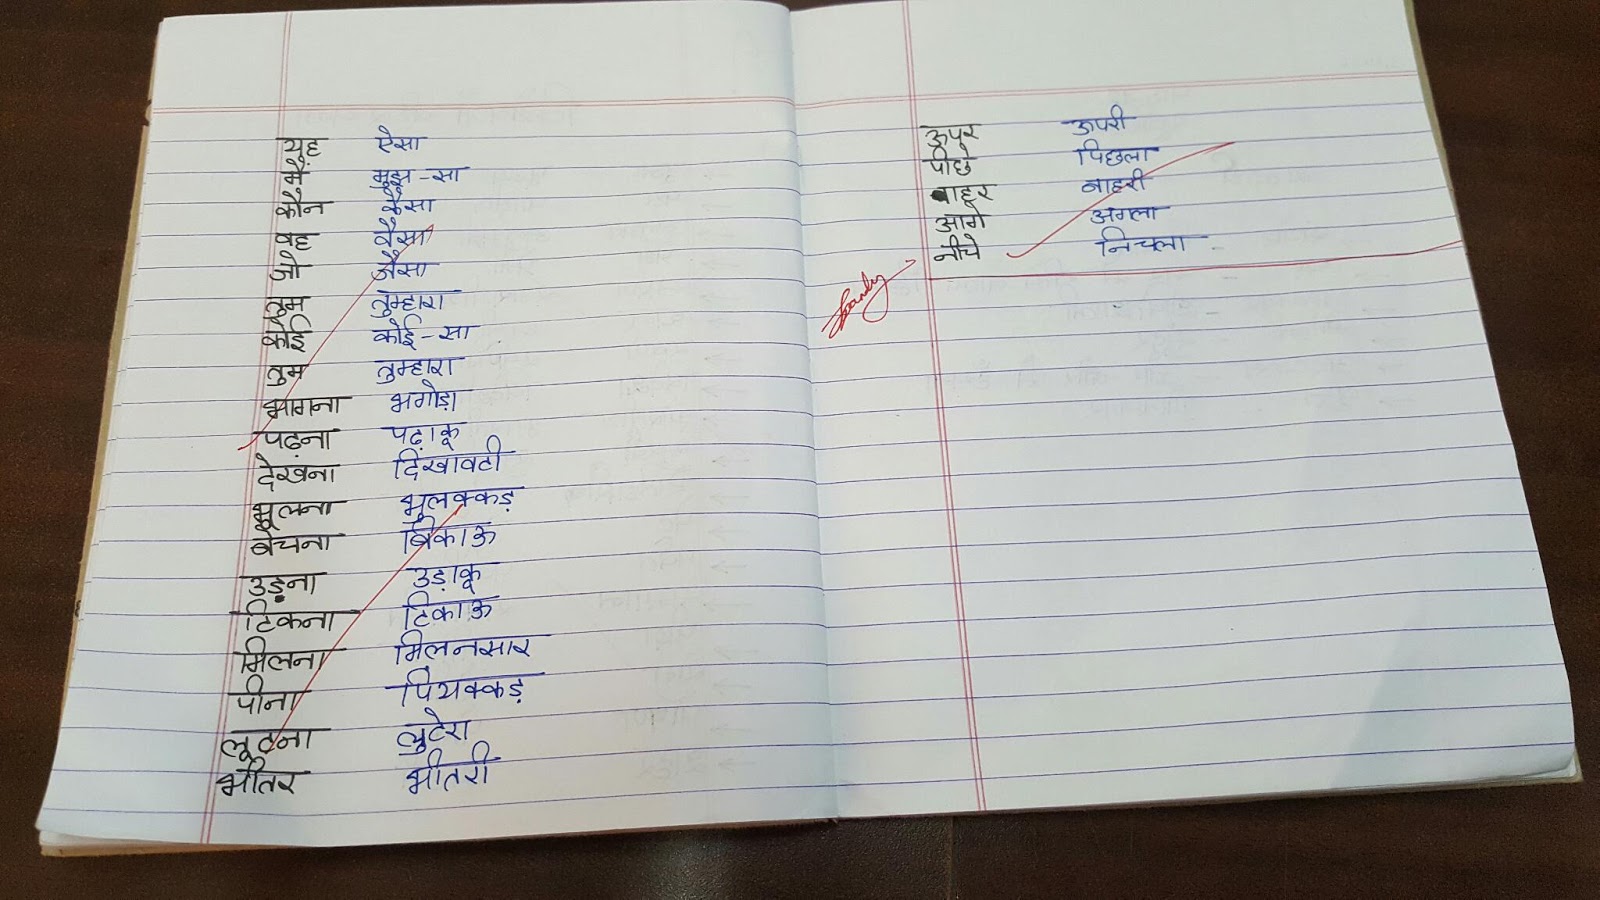 यह ऐसा
मैं मुझ-सा
कौन कैसा
वह वैसा
जो जैसा
तुम तुम्हारा
कोई कोई-सा
तुम तुम्हारा
भागना भगोड़ा
पढ़ना पढ़ाकू
देखना दिखावटी
भूलना भुलक्कड़
बेचना बिकाऊ
उड़ना उड़ाकू
टिकना टिकाऊ
मिलना मिलनसार
पीना पियक्कड़
लूटना लुटेरा
भीतर भीतरी
ऊपर ऊपरी
पीछे पिछला
बाहर बाहरी
आगे अगला
नीचे निचला